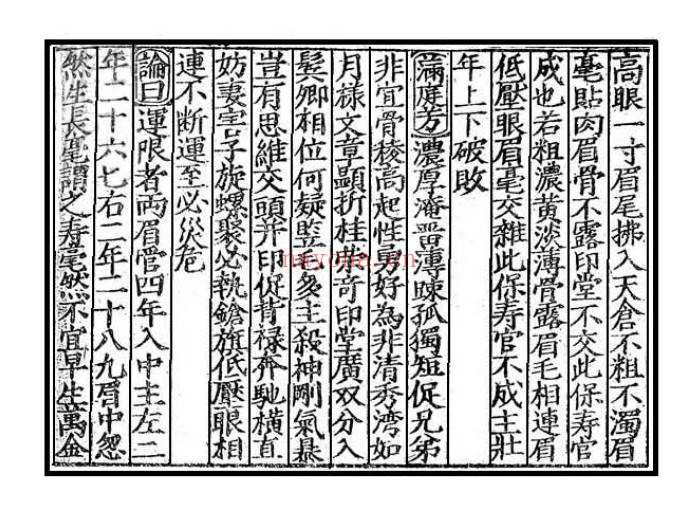 高眼一寸眉尾拂入天倉不粗不濁眉
毫貼肉眉骨不露印堂不交此保寿官
成也若粗濃黄淡薄骨露眉毛相連眉
低壓眼眉毫交雜此保寿官不成主壯
年上下破敗
滿庭芳濃厚淹畱薄踈孤獨短促兄弟
非宜骨稜高起性勇好為非清秀湾如
月樣文章顯折桂榮奇印堂廣双分入
鬓卿相位何疑竪毛多主殺神剛氣暴
豈有思維交頭并印促背禄奔馳横直
妨妻害子旋螺聚必執鎗旗低壓眼相
連不断運至必災危
論曰運限者两眉管四年入中主左二
年二十六七右二年二十八九眉中忽
然生長毫謂之寿毫然不宜早生萬金
nayona.cn